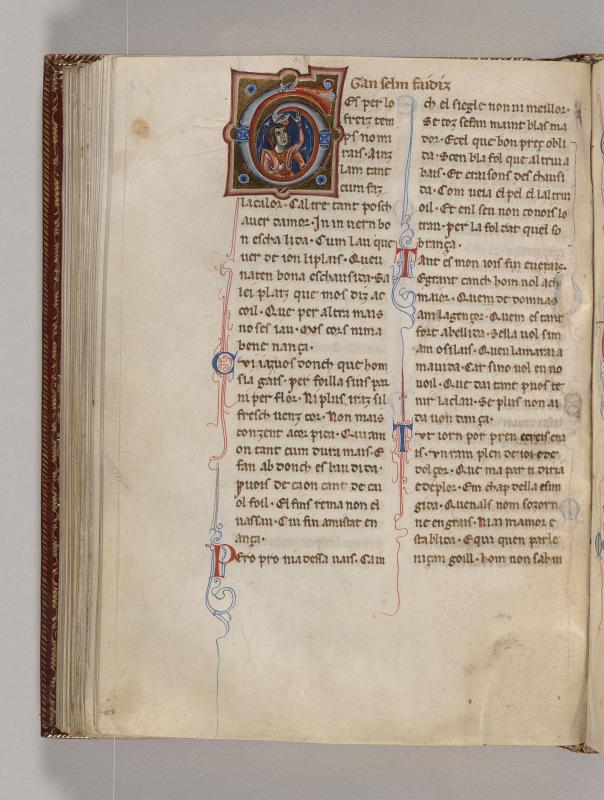 Gan selm faidiz
Es per lo
freiz tem
ps no mi
rais. Ainz
lam tant
cum faz
la calor. Cal tre tant posch
auer damor. In in uern bo
n escha lida. Cum lau que
uer de ion li plais. Queu
naten bona eschausida. Sa
lei plaiz que mos diz ac
coil. Que per altri mais
no ses iau. Mos cors nima
bene nança.
Cvi iaguos donch que hom
sia gais. per foilla sius par
ni per flor. Ni plus iraz sil
fresch uenz cor. Non mais
conzent acor pida. Qui am
on tant cum dura mais. E
fan ab donch es bau dida.
puois de ca on cant de cu
ol foil. El fins rema non el
uassiu. Cui fin amistat en
ança.
Pero pro ma dessa uais. Cam
ch el siegle non ui meillor.
Se toz sefan maint blas ma
dor. Ecel que bon preç obli
da. Soen bla fol que al trui a
bais. Et orai sons des chausi
da. Com ueia el pel el laltrui
oil. Et enl sen non conois lo
trau. per la fol dat quel so
brança.
Tant es mon iois fin euerais.
Egrant canch hom nol ach
maior. Quem de domnas
am lagençor. Quem es tant
fort abellida. Sella uol sim
am o si lais. Quen lamarai a
ma uida. Car si no uol en no
uoil. Que dal tant puos te
nir la clau. Se plus non ai
da uon dan ça.
Tot iorn por pren
is. un ram plen de ioi e de
dol çor. Que ma par ti diria
e de plor. Em chap della
gida. Quenals nom sozorn
ne engrais. Nim mamor e
sta blida. E qui quen parle
ni çan goill. hom non sab ni